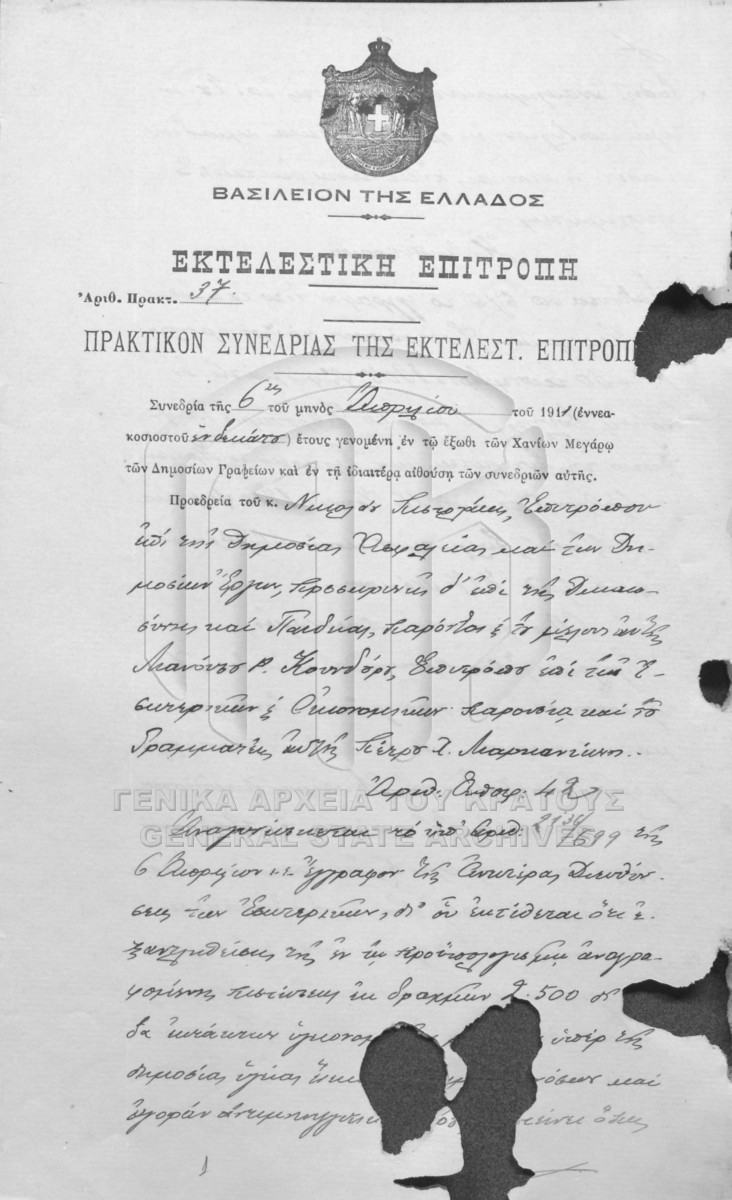 ΒΑΣΙΛΕΙΟΝ ΤΗΣ ΕΛΛΑΔΟΣ
ΕΚΤΕΛΕΣΤΙΚΗ ΕΠΙΤΡΟΠΗ
Ἀριθ. Πρακτ. 37.
ΠΡΑΚΤΙΚΟΝ ΣΥΝΕΔΡΙΑΣ ΤΗΣ ΕΚΤΕΛΕΣΤ. ΕΠΙΤΡΟΠΗ
Συνεδρία τῆς 6ης τοῦ μηνὸς Ἀπριλίου τοῦ 1911 (ἐννεα-
κοσιοστοῦ ἑνδεκάτου) ἔτους γενομένη ἐν τῷ ἔξωθι τῶν Χανίων Μεγάρῳ
τῶν Δημοσίων Γραφείων καὶ ἐν τῇ ἰδιαιτέρᾳ αἰθούσῃ τῶν συνεδριῶν αὐτῆς.
Προεδρεία τοῦ κ. Νικολάου Ἐπιτρόπου
ἐπὶ τῆς Δημοσίας Ἀσφαλείας καὶ τῶν Δη-
μοσίων Ἔργων, προσωρινῶς δ' ἐπὶ τῆς Δικαιο-
σύνης καὶ Παιδείας, παρόντος καὶ τοῦ μέλους αὐτῆς
Μανούσου Ρ. Κουνδούρου, Ἐπιτρόπου ἐπὶ τῶν Ἐ-
σωτερικῶν καὶ Οἰκονομικῶν παρουσίᾳ καὶ τοῦ
Γραμματέως αὐτῆς Πέτρου Χ. Μαρκαντώνη.
Ἀριθ. 42
ΓΕΝΙΚΑ ΑΡΧΕΙΑ ΤΟΥ ΚΡΑΤΟΥΣ
GENERAL STATE ARCHIVES
Ἀναγινώσκεται τὸ ὑπ' ἀριθ. τῆς
6 Ἀπριλίου ἔγγραφον τῆς Ἀνωτέρας Διευθύν-
σεως τῶν Ἐσωτερικῶν, δι' οὗ ἐκτίθεται ὅτι ἐ-
ξαντληθείσης τῆς ἐν τῷ προϋπολογισμῷ ἀναγρα-
φομένης πιστώσεως ἐκ δραχμῶν 2.500
ὑπὲρ τῆς
δημοσίας ὑγείας καὶ
ἀγορὰν ὅπως